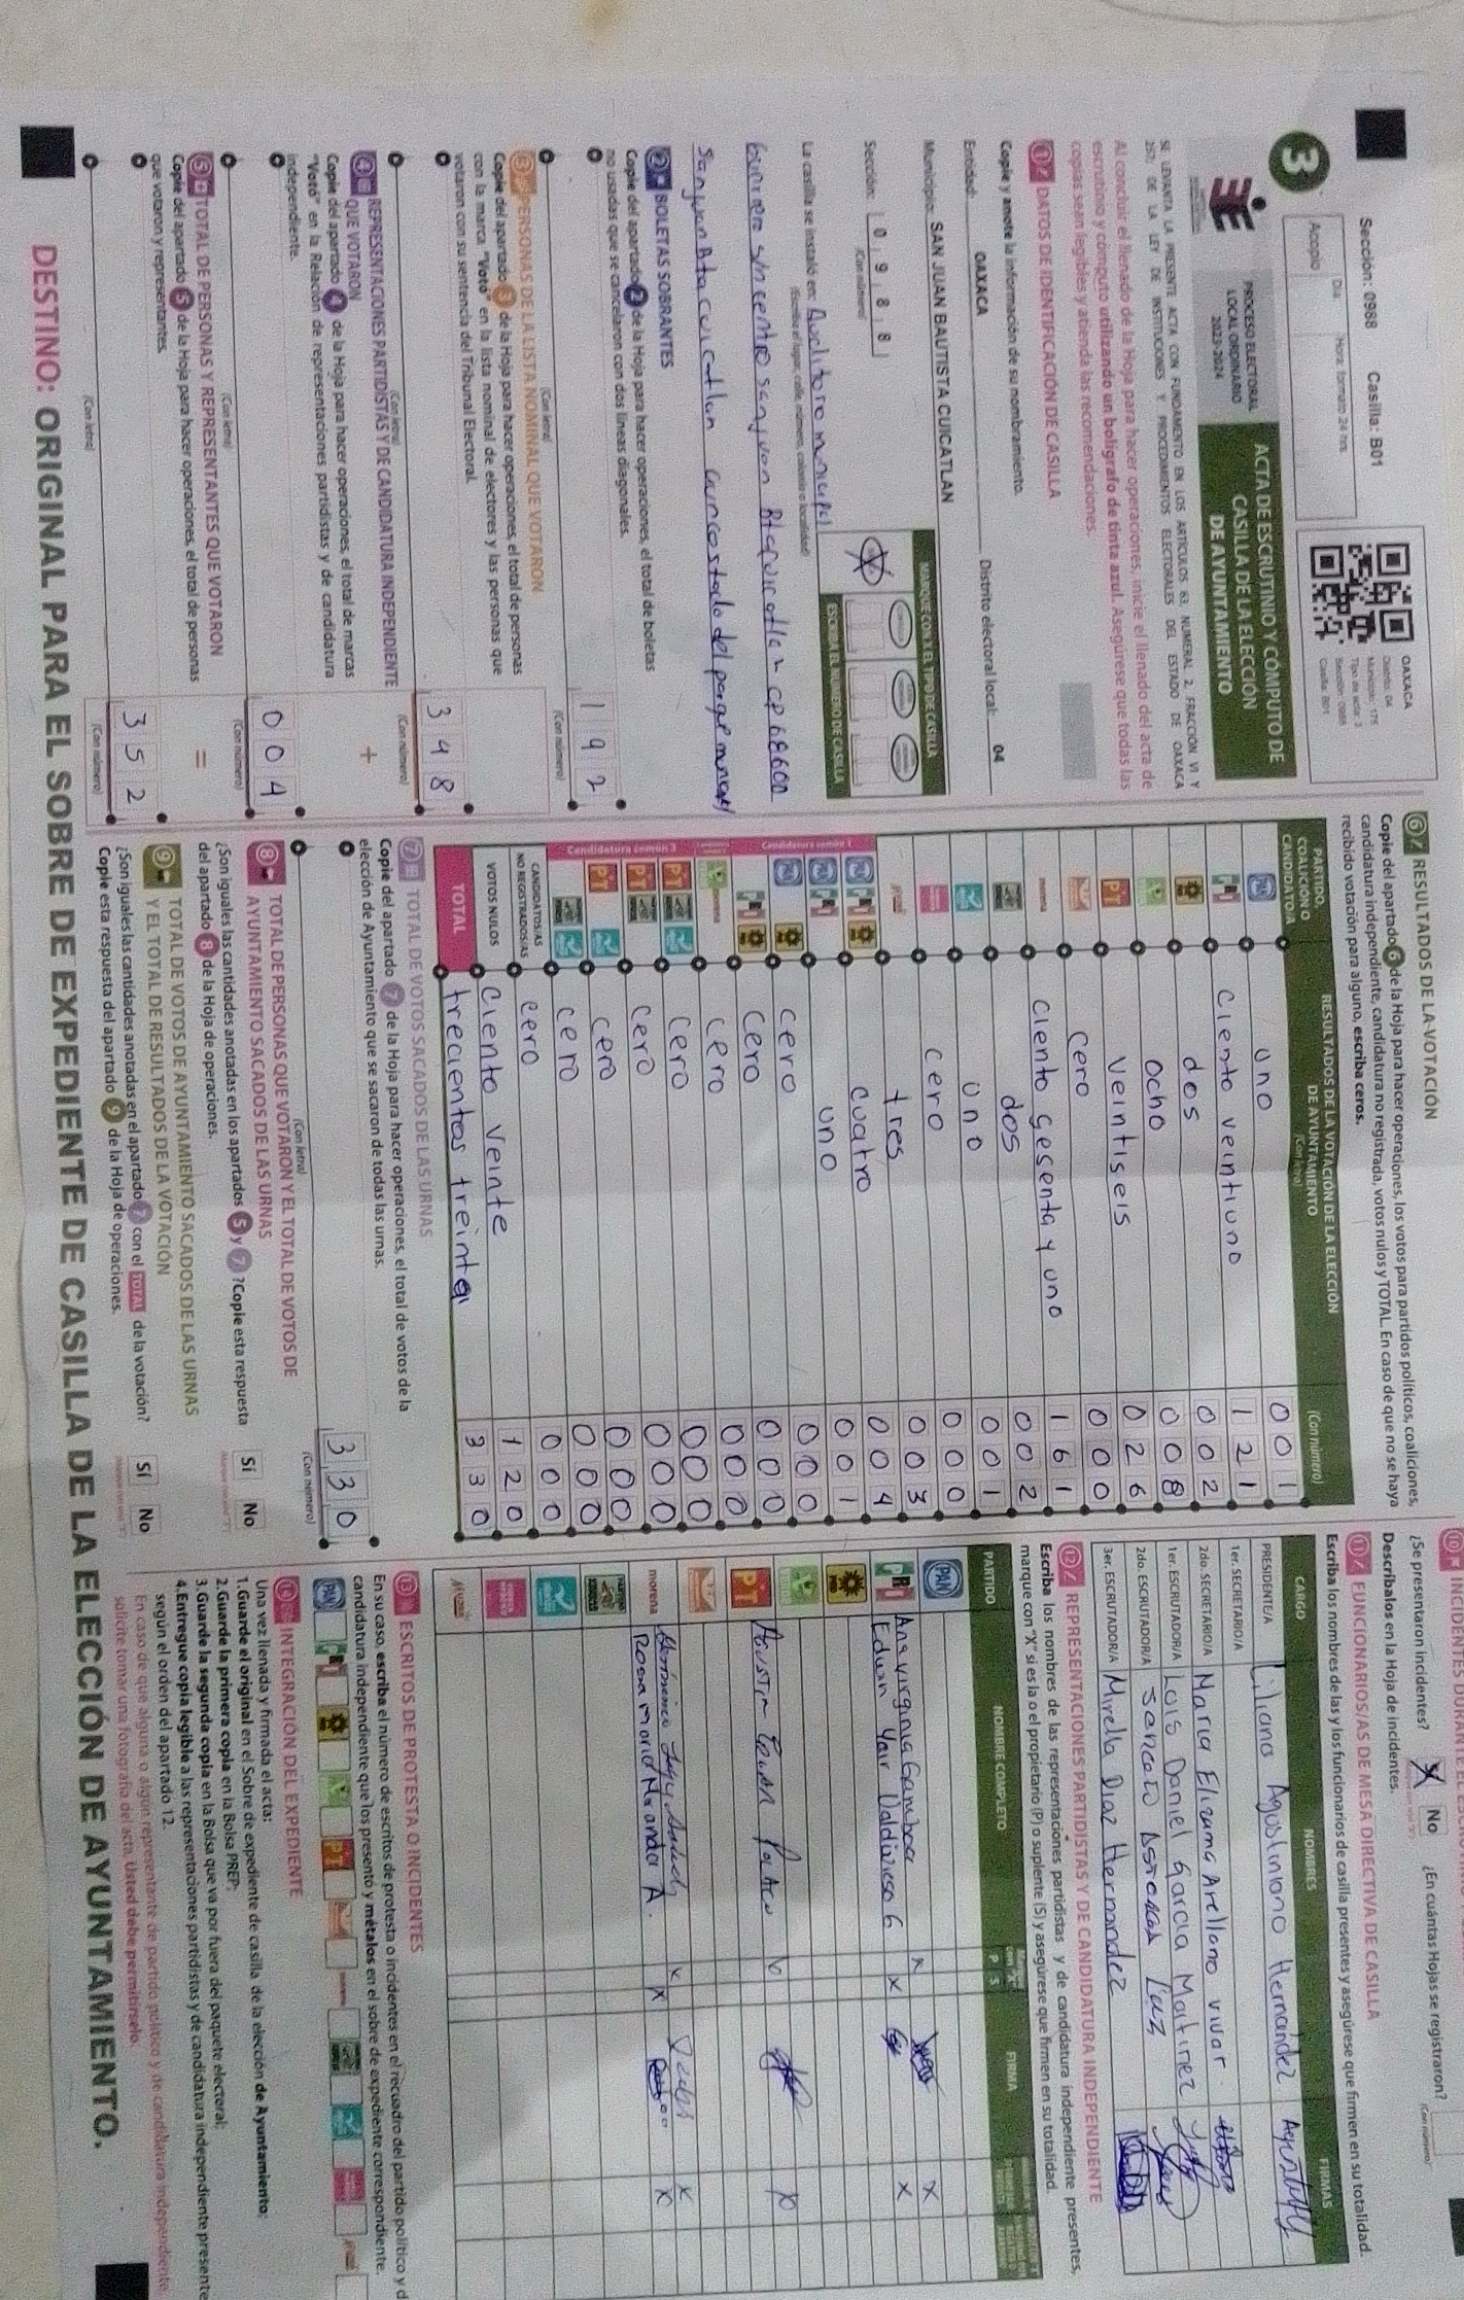 Sección: 0988 Casilla: B01
Acopio
Día
Hora: formato 24 hrs.
OAXACA
Distrito: 04
Municipio: 175
Tipo de acta: 3
Sección: 0988
Casilla: B01
3
PROCESO ELECTORAL
LOCAL ORDINARIO
2023-2024
ACTA DE ESCRUTINIO Y CÓMPUTO DE
CASILLA DE LA ELECCIÓN
DE AYUNTAMIENTO
SE LEVANTA LA PRESENTE ACTA CON FUNDAMENTO EN LOS ARTÍCULOS 63, NUMERAL 2, FRACCIÓN VI Y
257; DE LA LEY DE INSTITUCIONES Y PROCEDIMIENTOS ELECTORALES DEL ESTADO DE OAXACA
Al concluir el llenado de la Hoja para hacer operaciones, inicie el llenado del acta de
escrutinio y cómputo utilizando un bolígrafo de tinta azul. Asegúrese que todas las
copias sean legibles y atienda las recomendaciones.
1 DATOS DE IDENTIFICACIÓN DE CASILLA
Copie y anote la información de su nombramiento.
Entidad: OAXACA Distrito electoral local: 04
Municipio: SAN JUAN BAUTISTA CUICATLAN
Sección: 0 9 8 8
(Con número)
MARQUE CON X EL TIPO DE CASILLA
ESCRIBA EL NÚMERO DE CASILLA
La casilla se instaló en: Auditoro municipal
(Escriba el lugar, calle, número, colonia o localidad)
2 BOLETAS SOBRANTES
Copie del apartado 2 de la Hoja para hacer operaciones, el total de boletas
no usadas que se cancelaron con dos líneas diagonales.
(Con letra)
192
(Con número)
3 PERSONAS DE LA LISTA NOMINAL QUE VOTARON
Copie del apartado 3 de la Hoja para hacer operaciones, el total de personas
con la marca "Votó" en la lista nominal de electores y las personas que
votaron con su sentencia del Tribunal Electoral.
(Con letra)
348
(Con número)
4 REPRESENTACIONES PARTIDISTAS Y DE CANDIDATURA INDEPENDIENTE
QUE VOTARON
+
Copie del apartado 4 de la Hoja para hacer operaciones, el total de marcas
"Votó" en la Relación de representaciones partidistas y de candidatura
independiente.
(Con letra)
004
(Con número)
5 TOTAL DE PERSONAS Y REPRESENTANTES QUE VOTARON
=
Copie del apartado 5 de la Hoja para hacer operaciones, el total de personas
que votaron y representantes.
(Con letra)
352
(Con número)
6 RESULTADOS DE LA VOTACIÓN
Copie del apartado 6 de la Hoja para hacer operaciones, los votos para partidos políticos, coaliciones,
candidatura independiente, candidatura no registrada, votos nulos y TOTAL. En caso de que no se haya
recibido votación para alguno, escriba ceros.
PARTIDO,
COALICIÓN O
CANDIDATO/A
RESULTADOS DE LA VOTACIÓN DE LA ELECCIÓN
DE AYUNTAMIENTO
(Con letra)
(Con número)
PAN uno 001
PRI ciento veintiuno 121
PRD dos 002
ocho 008
PT veintiseis 026
cero 000
morena ciento sesenta y uno 161
dos 002
uno 001
cero 000
tres 003
PAN PRI PRD cuatro 004
PAN PRI uno 001
PAN PRD cero 000
PRI PRD cero 000
cero 000
PT cero 000
PT cero 000
PT cero 000
cero 000
CANDIDATOS/AS
NO REGISTRADOS/AS cero 000
VOTOS NULOS ciento veinte 120
TOTAL trecientos treinta 330
7 TOTAL DE VOTOS SACADOS DE LAS URNAS
Copie del apartado 7 de la Hoja para hacer operaciones, el total de votos de la
elección de Ayuntamiento que se sacaron de todas las urnas.
(Con letra)
330
(Con número)
8 TOTAL DE PERSONAS QUE VOTARON Y EL TOTAL DE VOTOS DE
AYUNTAMIENTO SACADOS DE LAS URNAS
¿Son iguales las cantidades anotadas en los apartados 5 y 7? Copie esta respuesta
del apartado 8 de la Hoja de operaciones.
Sí No
9 TOTAL DE VOTOS DE AYUNTAMIENTO SACADOS DE LAS URNAS
Y EL TOTAL DE RESULTADOS DE LA VOTACIÓN
¿Son iguales las cantidades anotadas en el apartado 7 con el TOTAL de la votación?
Copie esta respuesta del apartado 9 de la Hoja de operaciones.
Sí No
¿Se presentaron incidentes? No ¿En cuántas Hojas se registraron?
(Con número)
Descríbalos en la Hoja de incidentes.
11 FUNCIONARIOS/AS DE MESA DIRECTIVA DE CASILLA
Escriba los nombres de las y los funcionarios de casilla presentes y asegúrese que firmen en su totalidad.
CARGO NOMBRES FIRMAS
PRESIDENTE/A Liliana Agustiniano Hernández
1er. SECRETARIO/A
2do. SECRETARIO/A Maria Elizama Arellano vivar.
1er. ESCRUTADOR/A Luis Daniel Garcia Martinez
2do. ESCRUTADOR/A
3er. ESCRUTADOR/A Mirella Diaz Hernandez
12 REPRESENTACIONES PARTIDISTAS Y DE CANDIDATURA INDEPENDIENTE
Escriba los nombres de las representaciones partidistas y de candidatura independiente presentes,
marque con "X" si es la o el propietario (P) o suplente (S) y asegúrese que firmen en su totalidad.
PARTIDO NOMBRE COMPLETO P S FIRMA
PAN
PRI Ana virginia Gamboa x x
Eduan Yair Valdivieso G x x
PRD
PT
morena
13 ESCRITOS DE PROTESTA O INCIDENTES
En su caso, escriba el número de escritos de protesta o incidentes en el recuadro del partido político y d
candidatura independiente que los presentó y métalos en el sobre de expediente correspondiente.
INTEGRACIÓN DEL EXPEDIENTE
Una vez llenada y firmada el acta:
1.Guarde el original en el Sobre de expediente de casilla de la elección de Ayuntamiento;
2.Guarde la primera copia en la Bolsa PREP;
3.Guarde la segunda copia en la Bolsa que va por fuera del paquete electoral;
4.Entregue copia legible a las representaciones partidistas y de candidatura independiente presente
según el orden del apartado 12.
En caso de que alguna o algún representante de partido político y de candidatura independiente,
solicite tomar una fotografía del acta, Usted debe permitírselo.
DESTINO: ORIGINAL PARA EL SOBRE DE EXPEDIENTE DE CASILLA DE LA ELECCIÓN DE AYUNTAMIENTO.